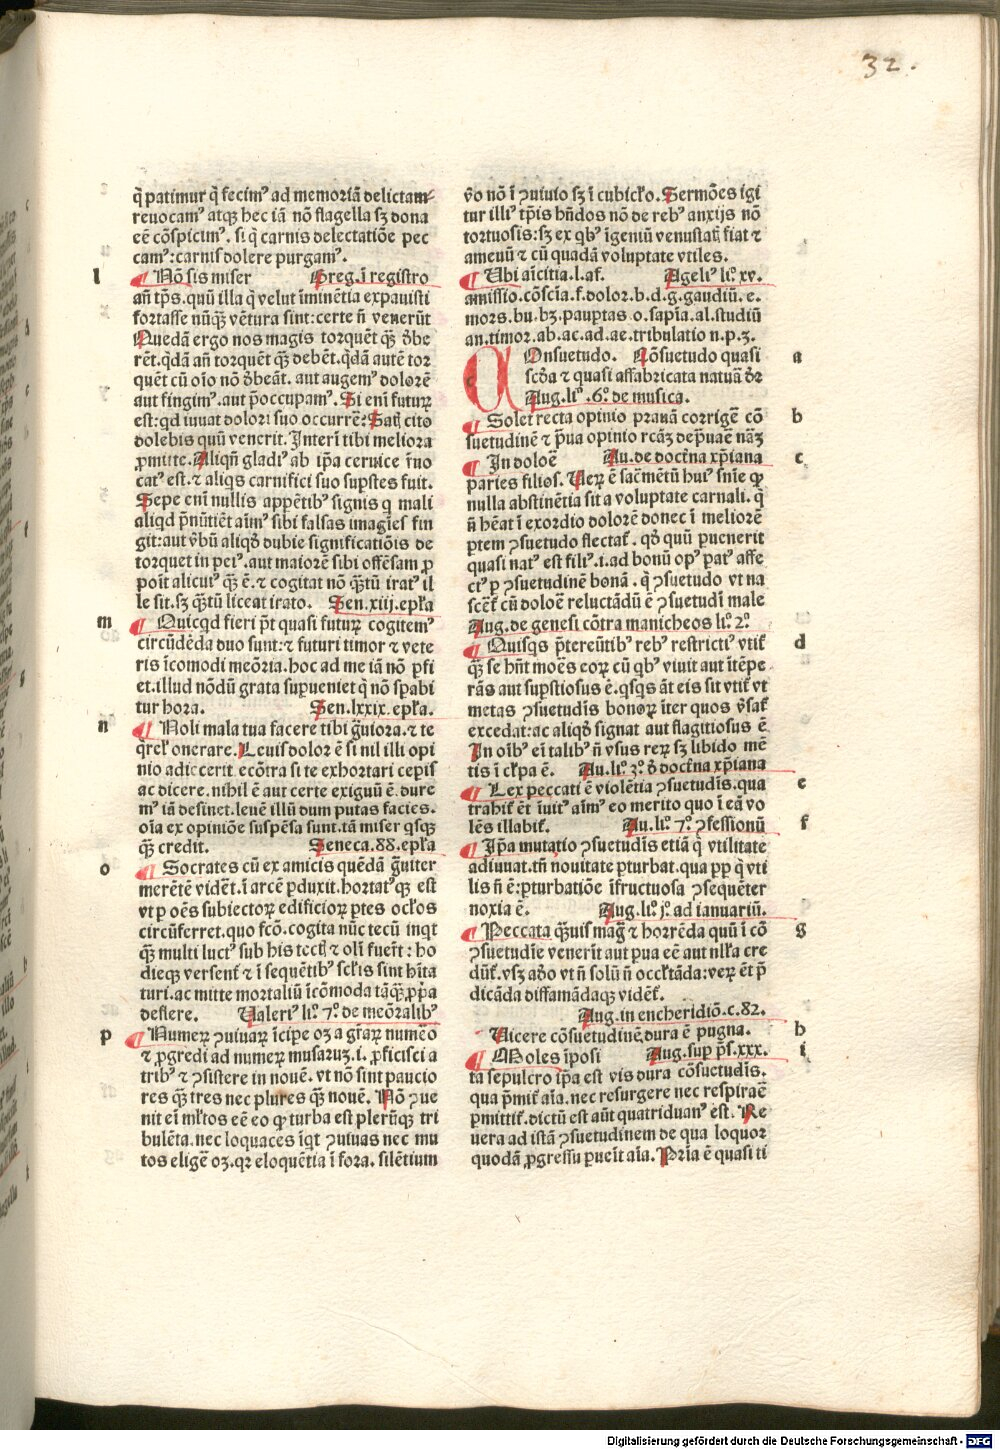 32.
q̄ patimur q̄ fecimꝰ ad memoriā delictam⸗
reuocamꝰ atqꝫ hec iā nō flagella sꝫ dona
eē cōspicimꝰ. si q̄ carnis delectatiōe pec
camꝰ: carnis dolere purgamꝰ.
l ¶ Nō sis miser Greg. ī registro
an̄ tp̄s. quū illa q̄ velut īminētia expauisti
fortasse nūqꝫ vētura sint: certe n̄ venerūt
Quedā ergo nos magis torquēt qꝫ̄ d̄be
rēt. qdā an̄ torquēt qꝫ̄ debēt. qdā autē tor
quēt cū oīo nō d̄beāt. aut augemꝰ dolorē
aut fingimꝰ. aut p̄occupamꝰ. Si enī futuꝝ
est: qd iuuat dolori suo occurrē? Satꝭ cito
dolebis quū venerit. Interī tibi meliora
ꝓmitte. Aliqn̄ gladiꝰ ab ip̄a ceruice īuo
catꝰ est. ⁊ aliqs carnifici suo supstes fuit.
Sepe enī nullis appētibꝰ signis q mali
aliqd p̄nūtiēt aīmꝰ sibi falsas imagīes fin
git: aut v̄bū aliqd̄ dubie significatiōis de
torquet in peiꝰ. aut maiorē sibi offēsam ꝓ
poīt alicuiꝰ qꝫ̄ ē. ⁊ cogitat nō qꝫ̄tū iratꝰ il
le sit. sꝫ qꝫ̄tū liceat irato. Sen. xiij. epl̄a
m ¶ Quicqd fieri pt̄ quasi futuꝝ cogitemꝰ
circūdēda duo sunt: ⁊ futuri timor ⁊ vete
ris īcomodi meōria. hoc ad me iā nō ꝑti
et. illud nōdū grata supueniet q̄ nō spabi
tur hora. Sen. lxxix. epl̄a.
n ¶ Noli mala tua facere tibi ḡuiora. ⁊ te
q̄reł onerare. Leuis dolor ē si nil illi opi
nio adiecerit. ecōtra si te exhortari cepis
ac dicere. nihil ē aut certe exiguū ē. dure
mꝰ iā desinet. leuē illū dum putas facies.
oīa ex opiniōe suspēsa sunt. tā miser qsqꝫ
qꝫ̄ credit. Seneca. 88. epl̄a
o ¶ Socrates cū ex amicis quēdā ḡuiter
merētē vidēt. ī arcē pduxit. hortatꝰqꝫ est
vt ꝑ oēs subiectoꝝ edificioꝝ ptes ocl̄os
circūferret. quo fcō. cogita nūc tecū inqt
qꝫ̄ multi luctꝰ sub his tectꝭ ⁊ oli fuerīt: ho
dieqꝫ versent̄ ⁊ ī sequētibꝰ scl̄is sint hīta
turi. ac mitte mortaliū īcōmoda tāqꝫ̄ ꝓp̄a
deflere. Valeriꝰ li°. 7°. de meōralibꝰ
p ¶ Numeꝝ ꝯuiuaꝝ īcipe oꝫ a gr̄aꝝ numēo
⁊ ꝓgredi ad numeꝝ musaruꝫ. i. ꝓficisci a
tribꝰ ⁊ ꝯsistere in nouē. vt nō sint paucio
res qꝫ̄ tres nec plures qꝫ̄ nouē. Nō ꝯue
nit eī ml̄tos eē eo ꝙ turba est plerūqꝫ tri
bulēta. nec loquaces īqt ꝯuiuas nec mu
tos eligē oꝫ. qꝛ eloquētia ī fora. silētium
v̄o nō ī ꝯuiuio sꝫ ī cubicl̄o. Sermōes igi
tur illiꝰ tp̄is hn̄dos nō de rebꝰ anxijs nō
tortuosis: sꝫ ex qbꝰ īgeniū venustatꝭ fiat ⁊
amenū ⁊ cū quadā voluptate vtiles.
¶ Vbi aīcitia. l. af. Ageliꝰ li°. xv.
amissio. cōscīa. f. dolor. b. d. g. gaudiū. e.
mors. bu. bꝫ. pauptas. o. sapīa. al. studiū
an. timor. ab. ac. ad. ae. tribulatio n. p. ꝫ.
a COnsuetudo. Cōsuetudo quasi
scd̄a ⁊ quasi affabricata natuā d̄r
Aug. li°. .6°. de musica.
b ¶ Solet recta opinio prauā corrigē cō
suetudinē ⁊ p̄ua opinio rcāꝫ depuāē nāꝫ
c ¶ In doloē Au. de doctn̄a xp̄iana
paries filios. Veꝝ ē sac̄mētū huiꝰ snīe ꝙ
nulla abstinētia sit a voluptate carnali. q̄
n̄ hēat ī exordio dolorē donec ī meliorē
ptem ꝯsuetudo flectat̄. qd̄ quū puenerit
quasi natꝰ est filiꝰ. i. ad bonū opꝰ patꝰ affe
ctꝰ ꝑ ꝯsuetudinē bonā. q̄ ꝯsuetudo vt na
scēt̄ cū doloē reluctādū ē ꝯsuetudī male
Aug. de genesi cōtra manicheos li°. 2°.
d ¶ Quisqs p̄tereūtibꝰ rebꝰ restrictiꝰ vtit̄
qꝫ̄ se hn̄t moēs eoꝝ cū qbꝰ viuit aut ītēpe
rās aut supstiosus ē. qsqs āt eis sit vtit̄ vt
metas ꝯsuetudīs bonoꝝ iter quos v̄sat̄
excedat: ac aliqd̄ signat aut flagitiosus ē
In oībꝰ eī talibꝰ n̄ vsus reꝝ sꝫ libido mē
tis ī cl̄pa ē. Au. li°. 3°. d̄ doctn̄a xp̄iana
e ¶ Lex peccati ē violētia ꝯsuetudīs. qua
trahit̄ et īuitꝰ aīmꝰ eo merito quo ī eā vo
lēs illabit̄. Au. li°. 7°. ꝯfessionū
f ¶ Ip̄a mutatio ꝯsuetudīs etiā q̄ vtilitate
adiuuat. tn̄ nouitate pturbat. qua ꝓp q̄ vti
lis n̄ ē: pturbatiōe īfructuosa ꝯsequēter
noxia ē. Aug. li°. j°. ad ianuariū.
g ¶ Peccata qꝫuis mag̃ ⁊ horrēda quū ī cō
ꝯsuetudīe venerīt aut pua eē aut nl̄la cre
dūt̄. vsꝫ adō vt n̄ solū n̄ occl̄tāda: veꝝ et p̄
dicāda diffamādaqꝫ vidēt̄.
Aug. in encheridiō. c. 82.
h Vicere cōsuetudinē dura ē pugna.
i ¶ Moles īposi Aug. sup ps̄. xxx.
ta sepulcro ip̄a est vis dura cōsuetudīs.
qua p̄mit̄ aīa. nec resurgere nec respiraē
pmittit̄. dictū est aūt quatriduanꝰ est. Re
uera ad istā ꝯsuetudinem de qua loquor
quodā ꝓgressu puenīt aīa. Prīa ē quasi ti
Digitalisierung gefördert durch die Deutsche Forschungsgemeinschaft - DFG